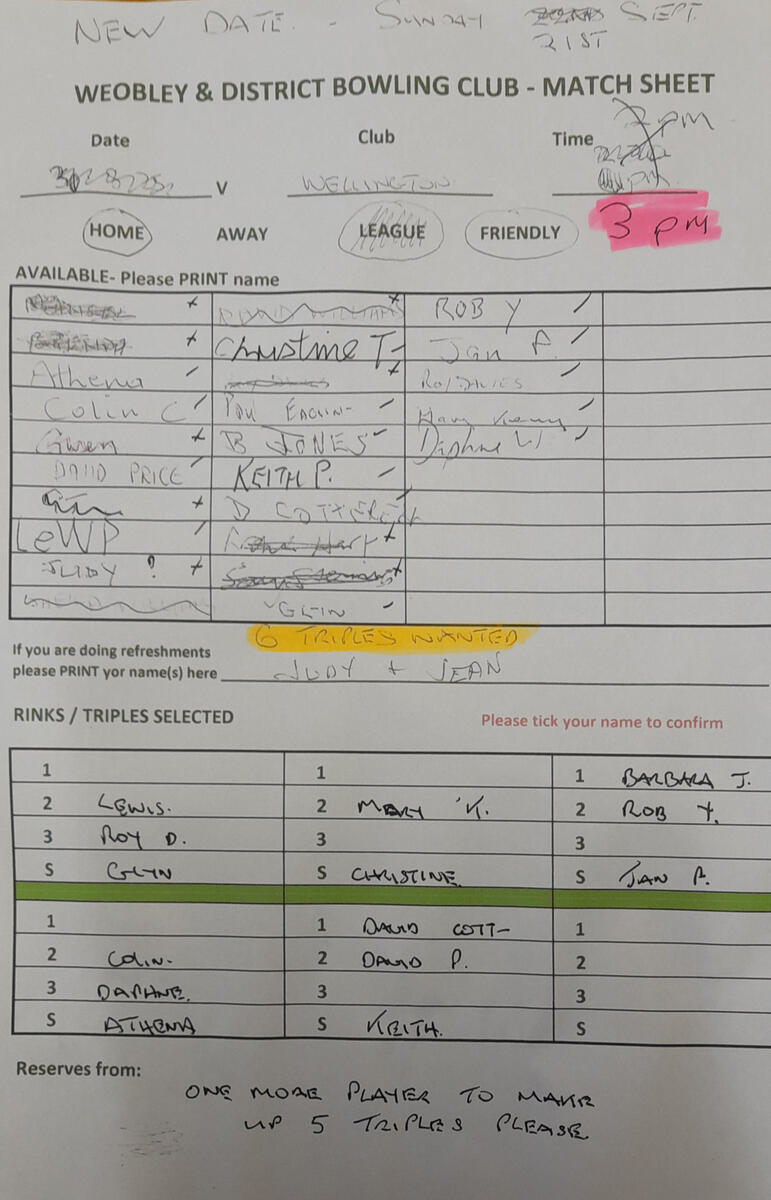 NEW DATE - SUNDAY SEPT.
21ST
WEOBLEY & DISTRICT BOWLING CLUB - MATCH SHEET
Date Club Time 2 pm
V WELLINGTON pm
HOME AWAY LEAGUE FRIENDLY 3 pm
AVAILABLE- Please PRINT name
ROB Y
Christine T Jan P.
Athena
Colin C
Gwen B JONES Daphne W
DAVID PRICE KEITH P.
D COTTERELL
LeWP
JUDY ?
GLYN
6 TRIPLES WANTED
If you are doing refreshments
please PRINT yor name(s) here JUDY + JEAN
RINKS / TRIPLES SELECTED Please tick your name to confirm
1 1 1 BARBARA J.
2 LEWIS. 2 MARY K. 2 ROB Y.
3 ROY D. 3 3
S GLYN S CHRISTINE. S JAN P.
1 1 DAVID COTT- 1
2 COLIN- 2 DAVID P. 2
3 DAPHNE. 3 3
S ATHENA S KEITH. S
Reserves from:
ONE MORE PLAYER TO MAKE
UP 5 TRIPLES PLEASE